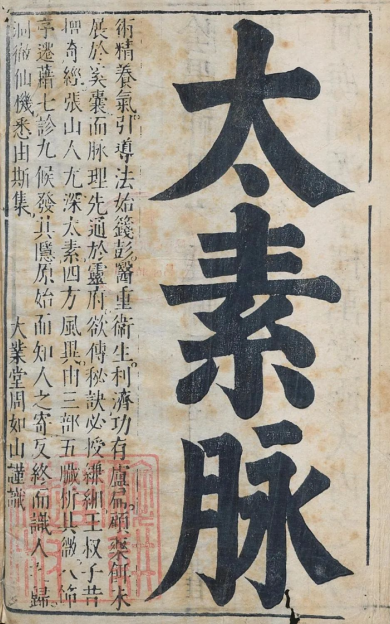 太素脉
術精養氣引導法始籛彭醫重衛生利濟功有盧扁頑藥餌未
展於奚囊而脉理先通於靈府欲傳秘訣必授謙細王叔子昔
奇經張山人尤深太素四方風異由三部五臟析其微八節
七診九候發其隱原始而知人之寄反終而識人之歸
洞微仙機悉由斯集
大業堂周如山謹識